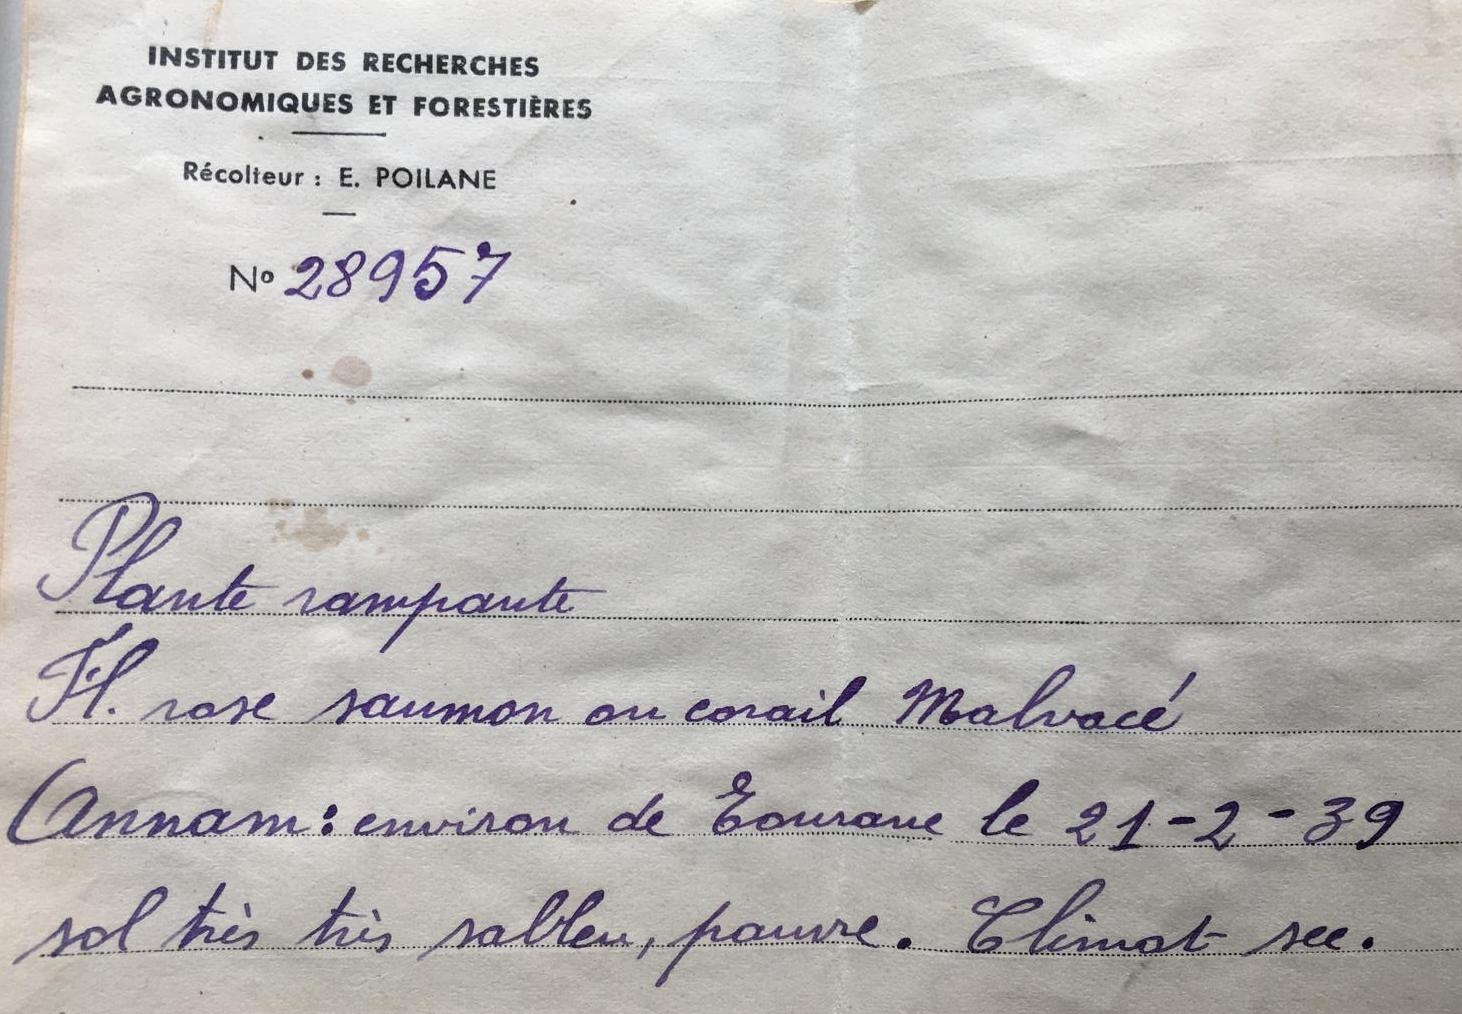 INSTITUT DES RECHERCHES
AGRONOMIQUES ET FORESTIÈRES
Récolteur : E. POILANE
No 28957
Plante rampante
Fl. rose saumon ou corail Malvacé
Annam: environ de Tourane le 21-2-39
sol très très sableu, pauvre. Climat sec.